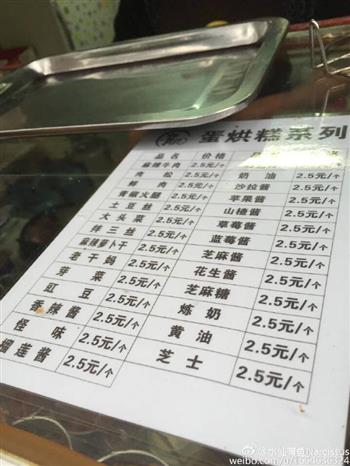 蛋烘糕系列
品名 价格
麻辣牛肉 2.5元/个
肉松 2.5元/个
鲜肉 2.5元/个
青椒火腿 2.5元/个
土豆丝 2.5元/个
大头菜 2.5元/个
拌三丝 2.5元/个
麻辣萝卜干 2.5元/个
老干妈 2.5元/个
芽菜 2.5元/个
豇豆 2.5元/个
香辣酱 2.5元/个
怪味 2.5元/个
榴莲酱 2.5元/个
奶油 2.5元/个
沙拉酱 2.5元/个
苹果酱 2.5元/个
山楂酱 2.5元/个
草莓酱 2.5元/个
蓝莓酱 2.5元/个
芝麻酱 2.5元/个
花生酱 2.5元/个
芝麻糖 2.5元/个
炼奶 2.5元/个
黄油 2.5元/个
芝士 2.5元/个